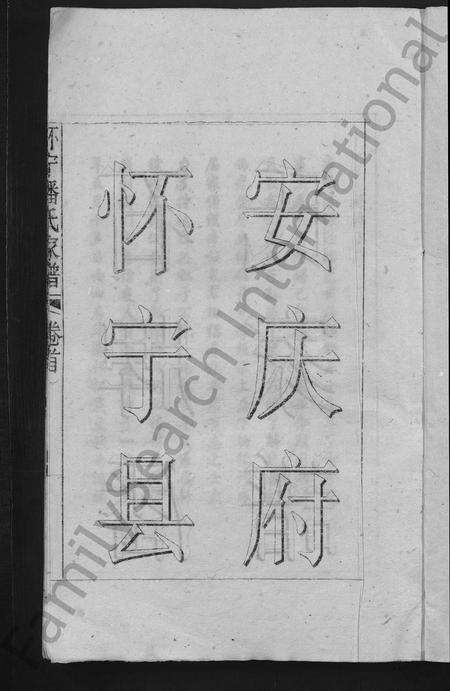 安庆府
怀宁县
怀宁潘氏家谱
卷首
FamilySearch International